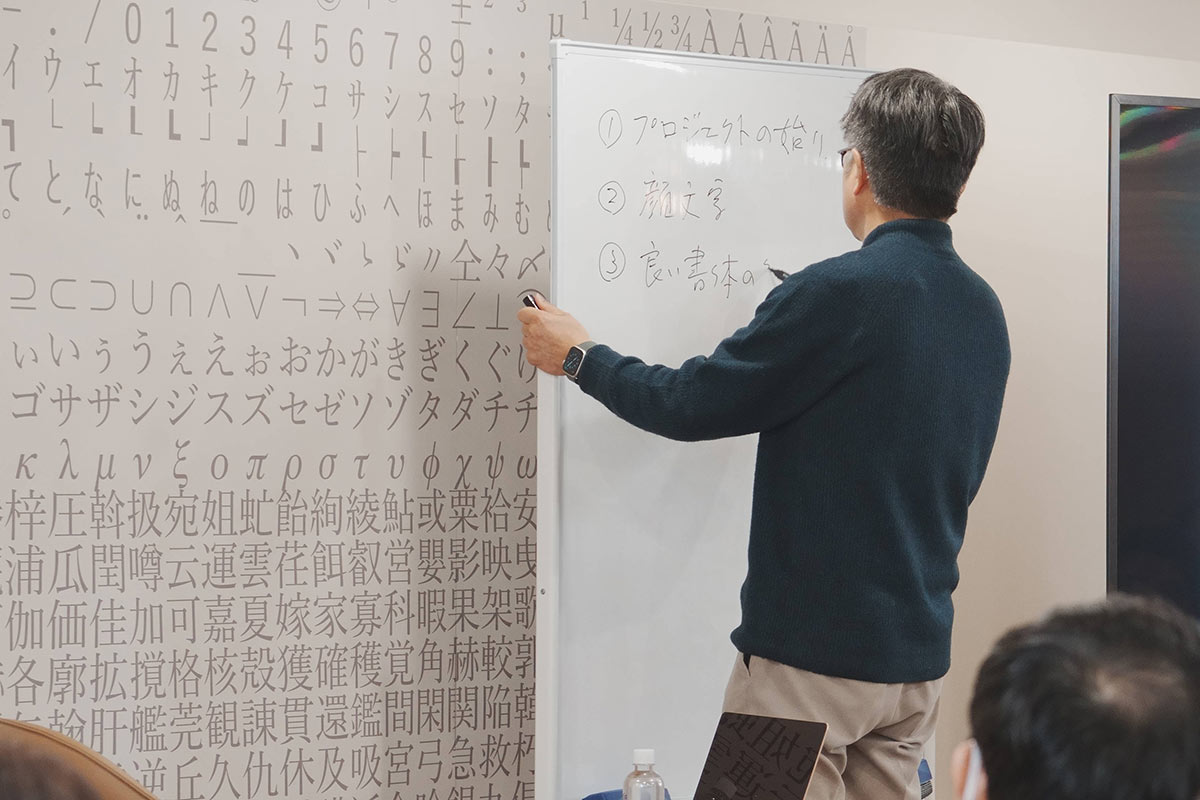 . / 0 1 2 3 4 5 6 7 8 9 : ;
μ ¹ ¼ ½ ¾ À Á Â Ã Ä Å
イ ウ ェ オ カ キ ク ケ コ サ シ ス セ ソ タ
て と な に ぬ ね の は ひ ふ へ ほ ま み む
ヽ ヾ ゝ ゞ 〃 仝 々 〆
⊇ ⊂ ⊃ ∪ ∩ ∧ ∨ ¬ ⇒ ⇔ ∀ ∃ ∠ ⊥
ぃ い ぅ う ぇ え ぉ お か が き ぎ く ぐ け
ゴ サ ザ シ ジ ス ズ セ ゼ ソ ゾ タ ダ チ チ
κ λ μ ν ξ ο π ρ σ τ υ φ χ ψ ω
梓 圧 斡 扱 宛 姐 虻 飴 絢 綾 鮎 或 粟 袷 安
浦 瓜 閏 噂 云 運 雲 荏 餌 叡 営 嬰 影 映 曳
伽 価 佳 加 可 嘉 夏 嫁 家 寡 科 暇 果 架 歌
各 廓 拡 撹 格 核 殻 獲 確 穫 覚 角 赫 較 郭
翰 肝 艦 莞 観 諌 貫 還 鑑 間 閑 関 陥 韓
逆 丘 久 仇 休 及 吸 宮 弓 急 救 朽
① プロジェクトの始り
② 顔文字
③ 良い書体の